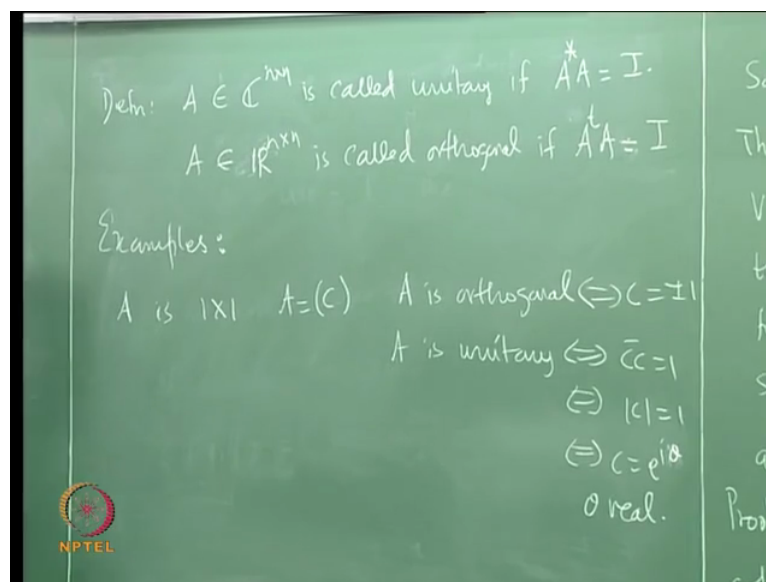 Defn: A ∈ ℂ^{n×n} is called unitary if A*A = I.
A ∈ ℝ^{n×n} is called orthogonal if A^t A = I
Examples:
A is 1×1 A=(c) A is orthogonal ⇔ c = ±1
A is unitary ⇔ c̄c = 1
⇔ |c| = 1
⇔ c = e^{iθ}
θ real.
NPTEL